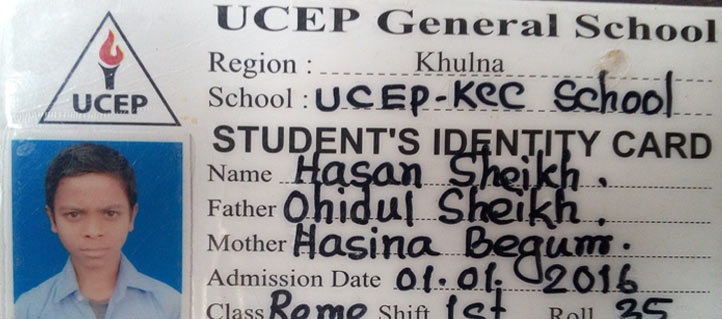 UCEP General School
Region : Khulna
School : UCEP-KCC School
UCEP
STUDENT'S IDENTITY CARD
Name Hasan Sheikh.
Father Ohidul Sheikh.
Mother Hasina Begum.
Admission Date 01.01.2016
Class Shift 1st Roll 35